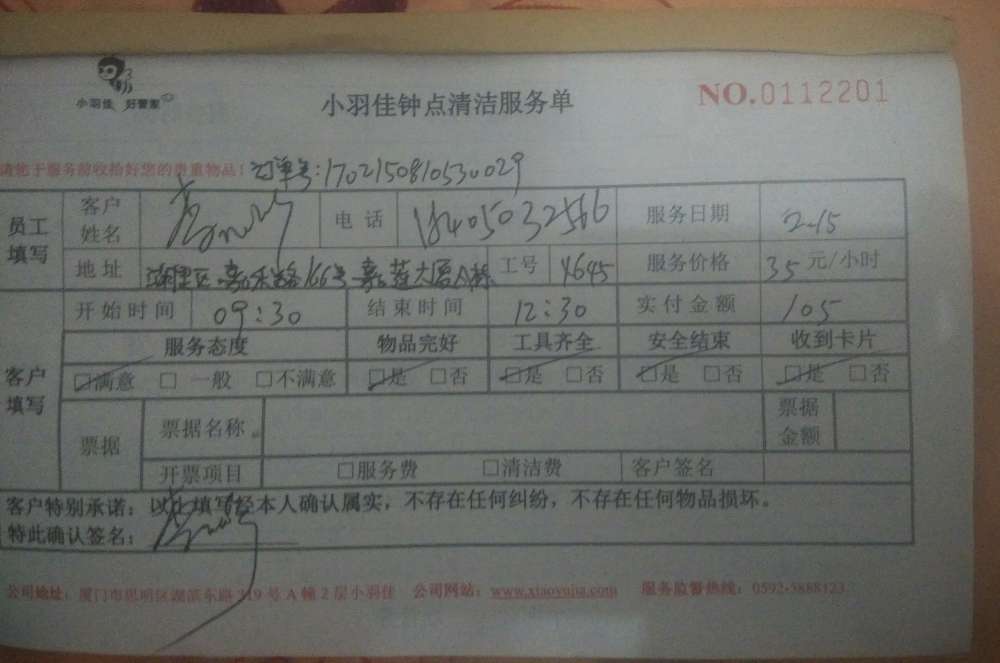 小羽佳 好管家
小羽佳钟点清洁服务单
NO.0112201
请您于服务前收拾好您的贵重物品! 订单号:1702150810530029
员工填写 客户姓名 电话 18405032566 服务日期 2-15
地址 湖里区嘉禾路166号嘉莲大厦A栋 工号 4645 服务价格 35元/小时
开始时间 09:30 结束时间 12:30 实付金额 105
客户填写 服务态度 物品完好 工具齐全 安全结束 收到卡片
□满意 □一般 □不满意 □是 □否 □是 □否 □是 □否 □是 □否
票据 票据名称 票据金额
开票项目 □服务费 □清洁费 客户签名
客户特别承诺:以上填写经本人确认属实,不存在任何纠纷,不存在任何物品损坏。
特此确认签名:
公司地址:厦门市思明区湖滨东路319号A幢2层小羽佳 公司网站:www.xiaoyujia.com 服务监督热线:0592-5888123